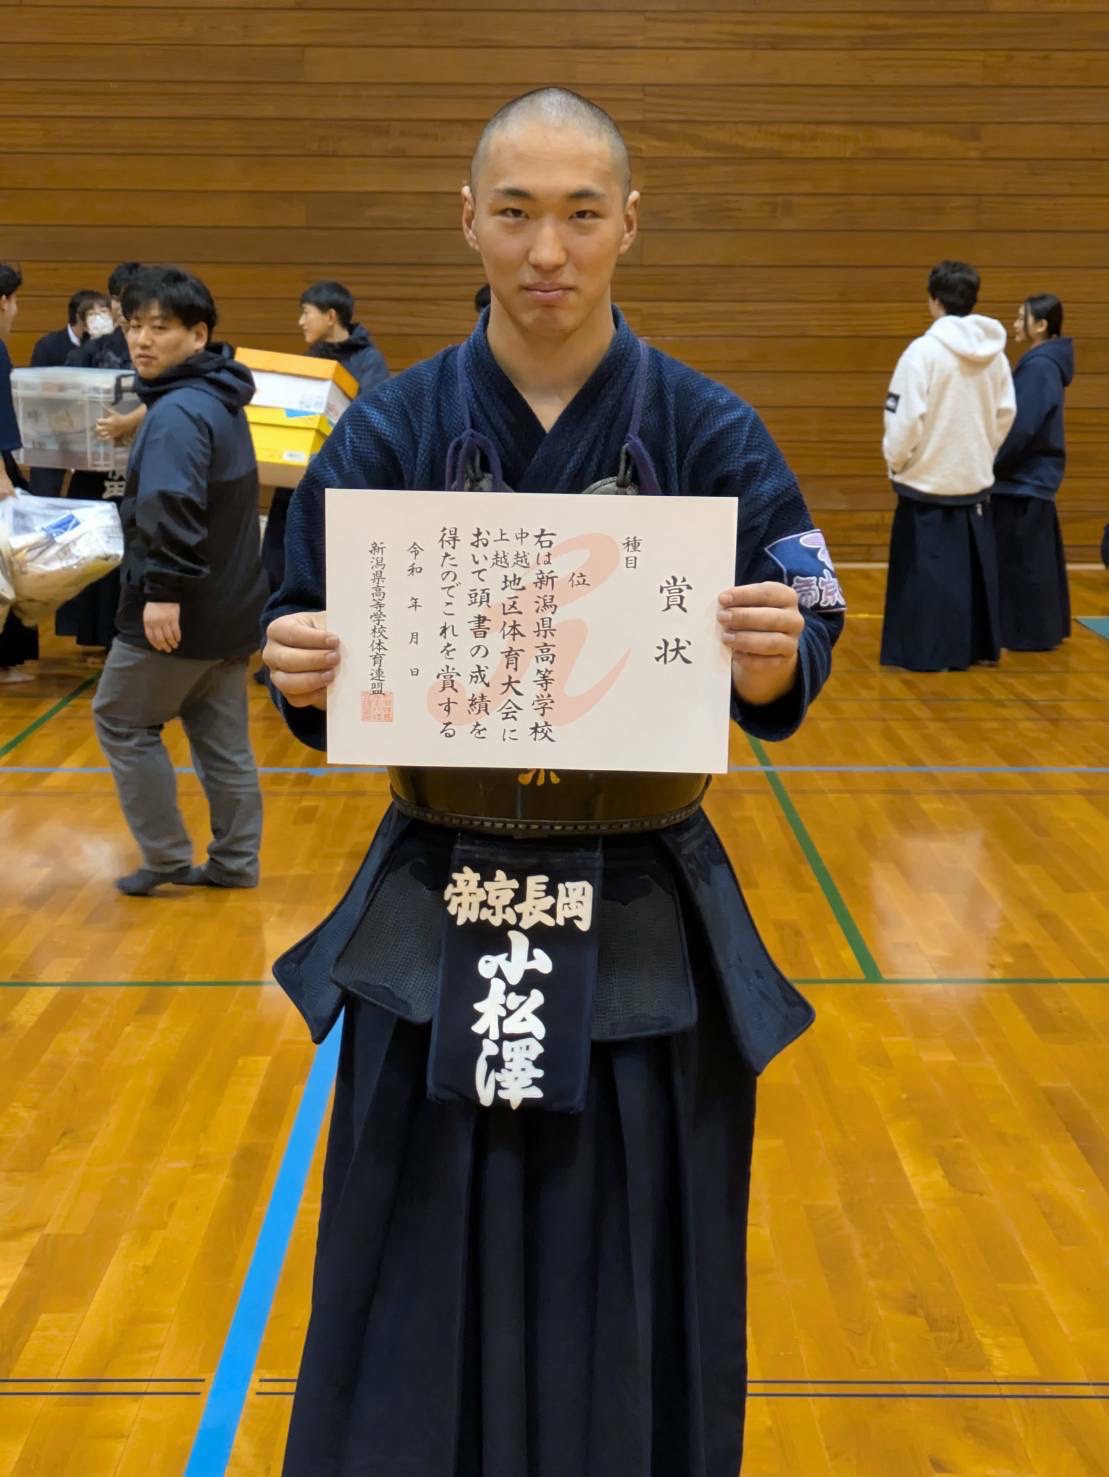 賞状
種目
位
右は新潟県高等学校
中越
上越
地区体育大会に
おいて頭書の成績を
得たのでこれを賞する
令和 年 月 日
新潟県高等学校体育連盟
帝京長岡
小松澤
帝京